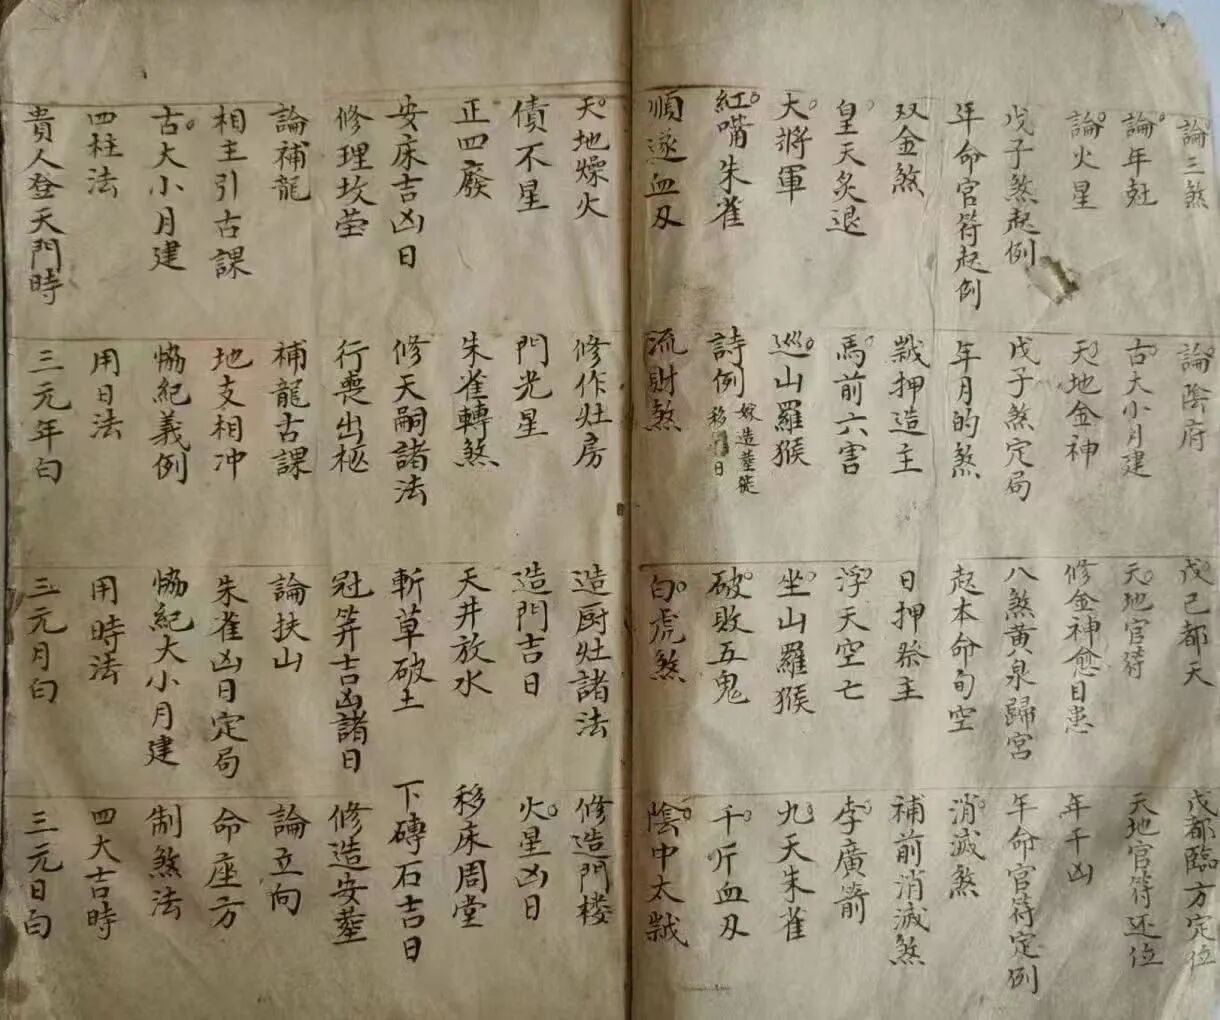 論三煞 論陰府 戊己都天 戊都臨方定位
論年尅 古大小月建 天地官符 天地官符还位
論火星 天地金神 修金神愈目患 年干凶
戊子煞起例 戊子煞定局 八煞黄泉歸宮 年命官符定例
年命官符起例 年月的煞 起本命旬空 消滅煞
双金煞 押造主 日押祭主 補前消滅煞
皇天炙退 馬前六害 浮天空亡 李廣箭
大將軍 巡山羅猴 坐山羅猴 九天朱雀
紅嘴朱雀 詩例 嫁造塟徙 移日 破敗五鬼 千斤血刃
順逆血刃 流財煞 白虎煞 陰中太歲
天地燥火 修作灶房 造厨灶諸法 修造門楼
債不星 門光星 造門吉日 火星凶日
正四廢 朱雀轉煞 天井放水 移床周堂
安床吉凶日 修天嗣諸法 斬草破土 下磚石吉日
修理坟茔 行喪出柩 冠笄吉凶諸日 修造安塟
論補龍 補龍古課 論扶山 論立向
相主引古課 地支相冲 朱雀凶日定局 命座方
古大小月建 恊紀義例 恊紀大小月建 制煞法
四柱法 用日法 用時法 四大吉時
貴人登天門時 三元年白 三元月白 三元日白